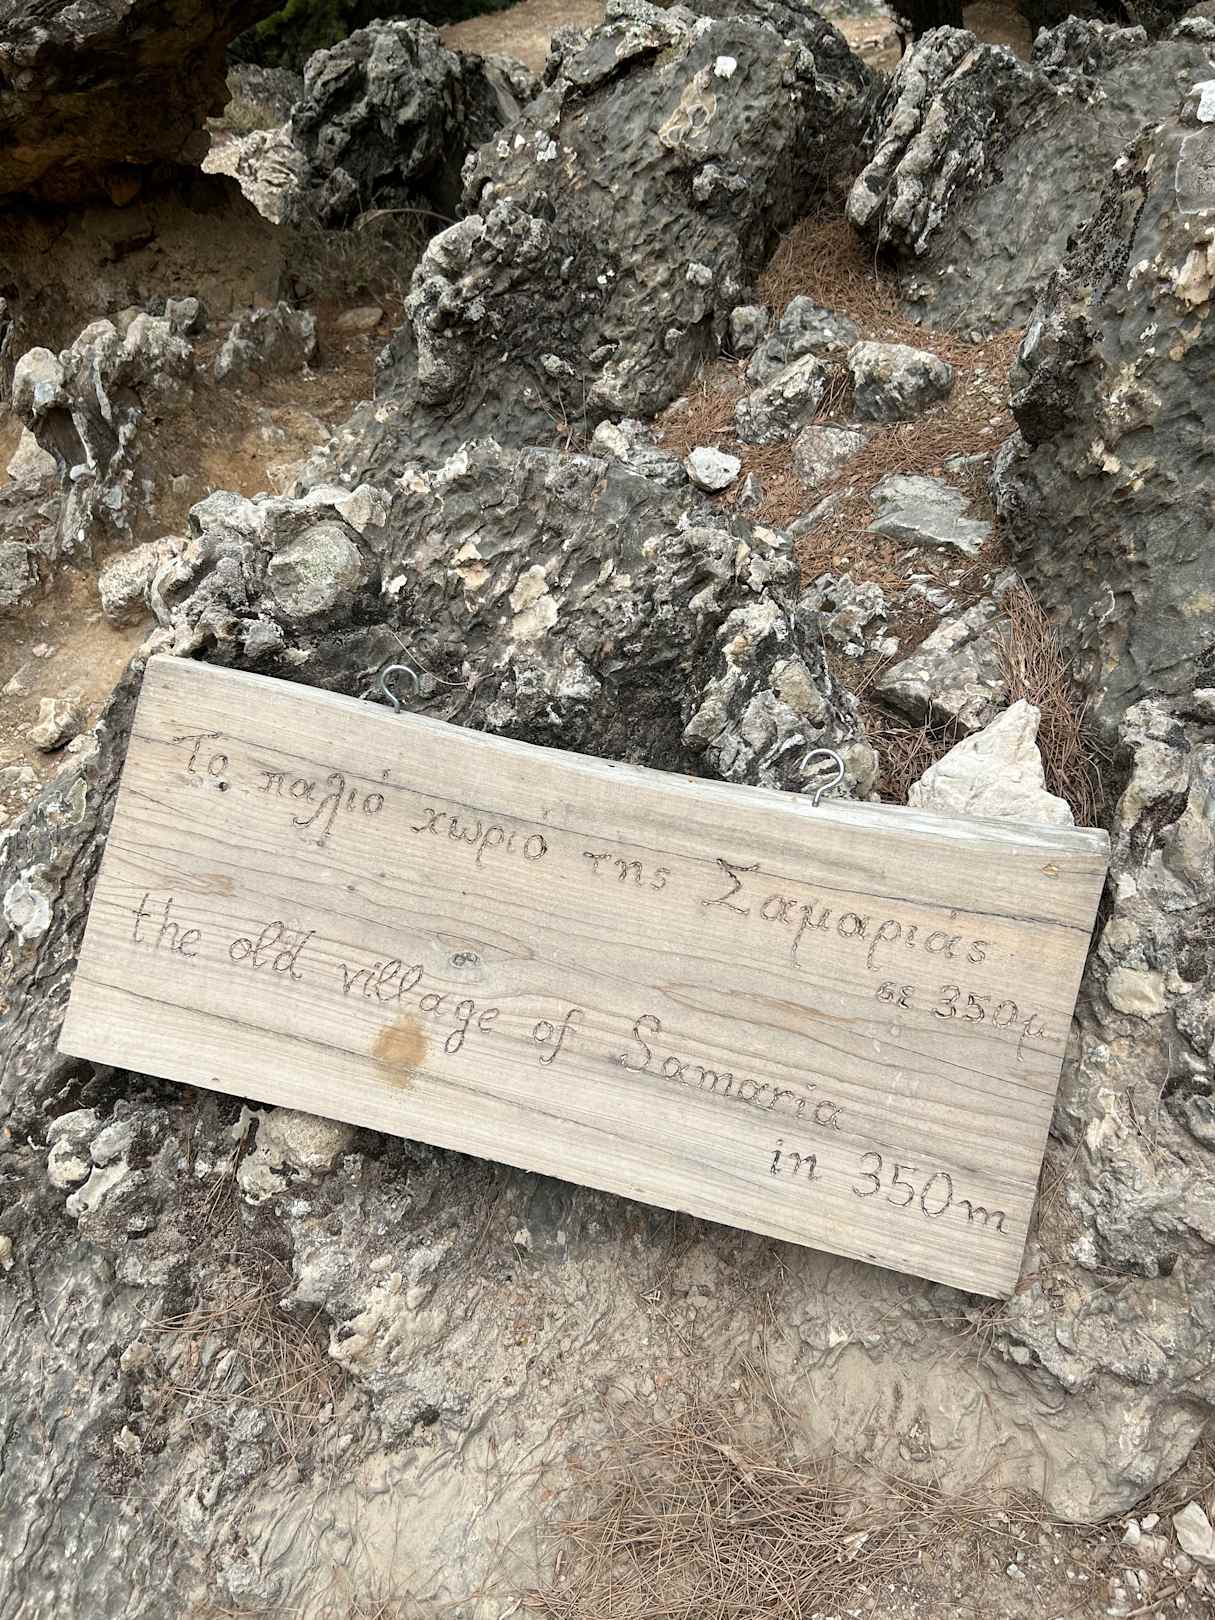 Το παλιό χωριό της Σαμαριάς
σε 350μ
the old village of Samaria
in 350m